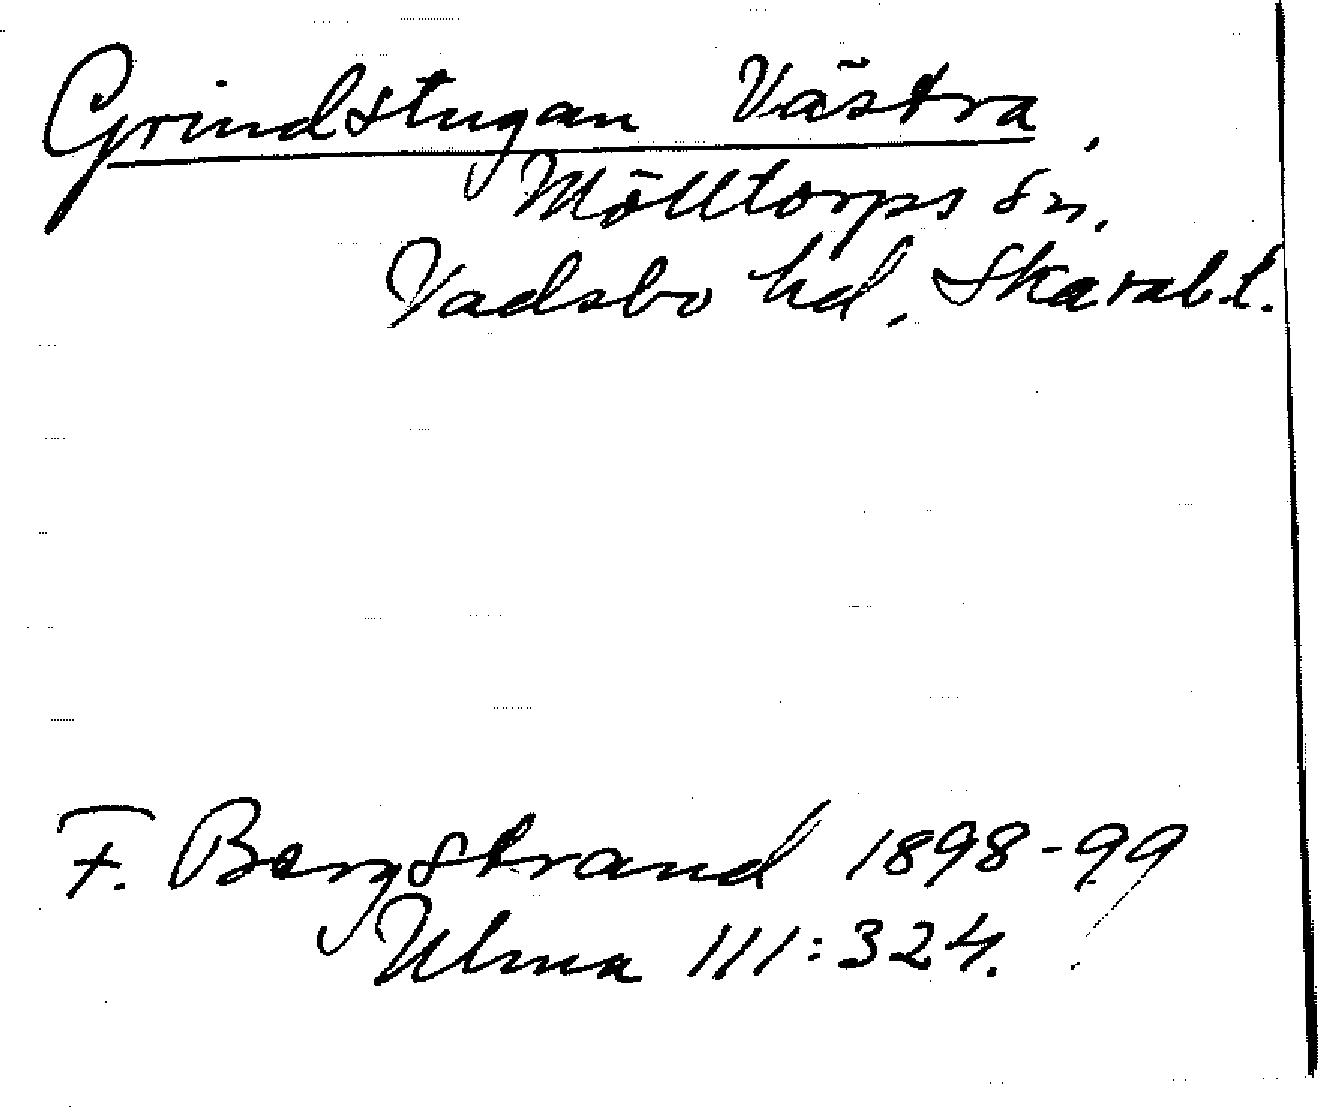 Grindstugan Västra,
Mölltorps sn.
Vadsbo hd, Skarab.l.
F. Bergstrand 1898-99
Ulma 111:324.